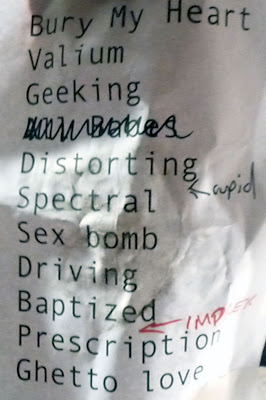 Bury My Heart
Valium
Geeking
Distorting
←cupid
Spectral
Sex bomb
Driving
Baptized
←IMPLEX
Prescription
Ghetto love